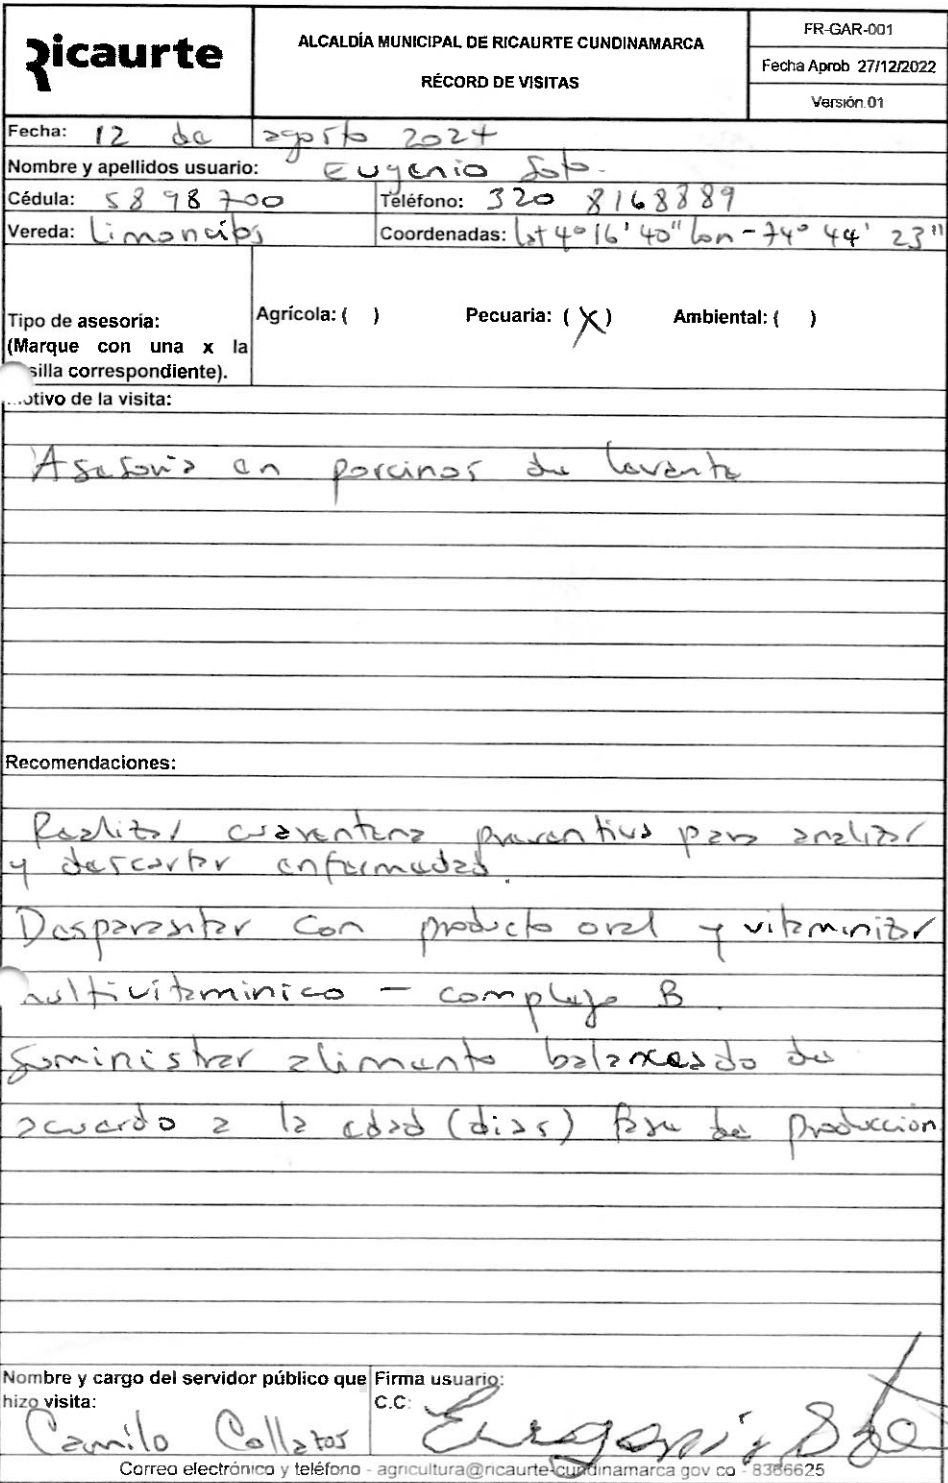 Ricaurte
ALCALDÍA MUNICIPAL DE RICAURTE CUNDINAMARCA
RÉCORD DE VISITAS
FR-GAR-001
Fecha Aprob 27/12/2022
Versión 01
Fecha: 12 de agosto 2024
Nombre y apellidos usuario: Eugenio Soto.
Cédula: 5898700 Teléfono: 320 8168889
Vereda: Limoncitos Coordenadas: lat 4° 16' 40" lon - 74° 44' 23"
Tipo de asesoría:
(Marque con una x la
silla correspondiente).
Agrícola: ( ) Pecuaria: (X) Ambiental: ( )
otivo de la visita:
Asesoria en porcinos de levante
Recomendaciones:
Realizar cuarentena preventiva para analizar
y descartar enfermedad.
Desparasitar con producto oral y vitaminizar
multivitaminico - complejo B.
Suministrar alimento balanceado de
acuerdo a la edad (dias) fase de producción
Nombre y cargo del servidor público que
hizo visita:
Camilo Collazos
Firma usuario:
C.C:
Eugenio Soto
Correo electrónico y teléfono - agricultura@ricaurte-cundinamarca gov co - 8366625